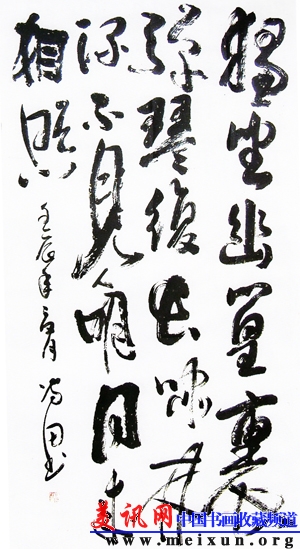 獨坐幽篁裏
彈琴復長嘯
深不見人明月来
相照
壬辰年
田书
美讯网 中国书画收藏频道
www.meixun.org